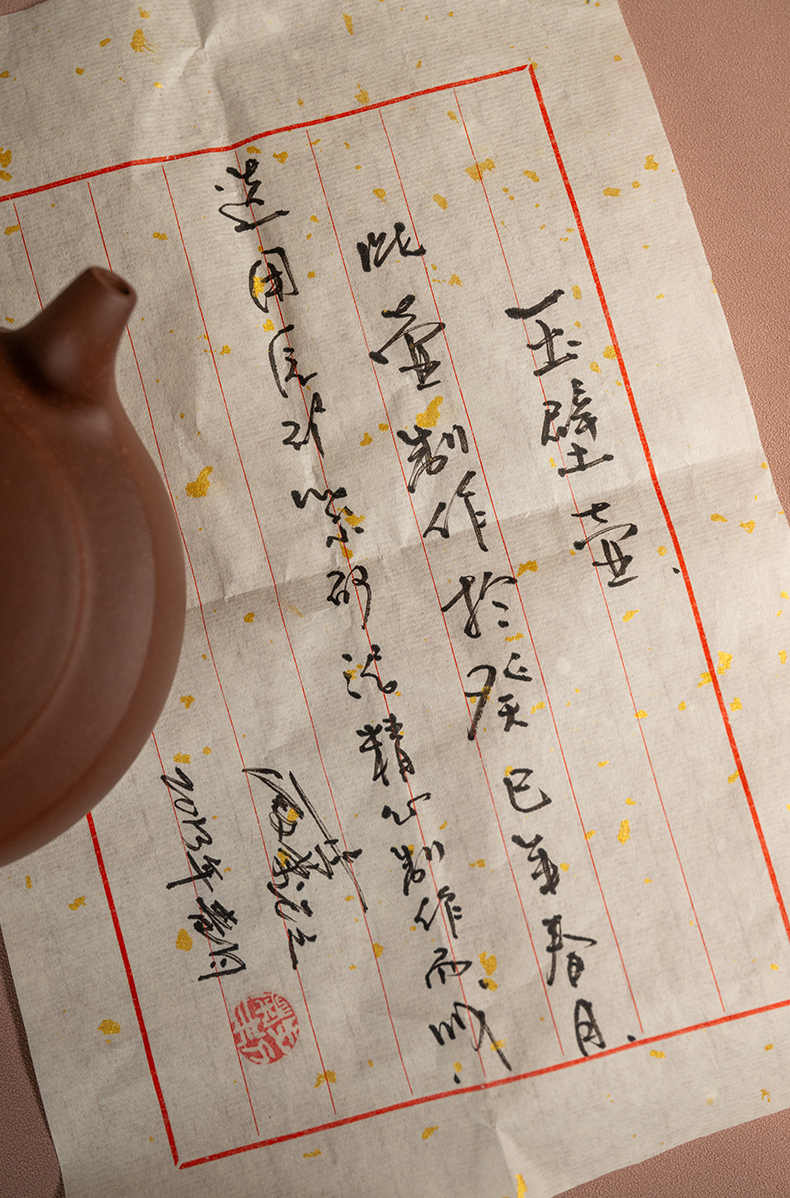 玉壁壶.
此壶制作於癸巳年春月.
选用原矿紫砂泥精心制作而成.
2013年春月